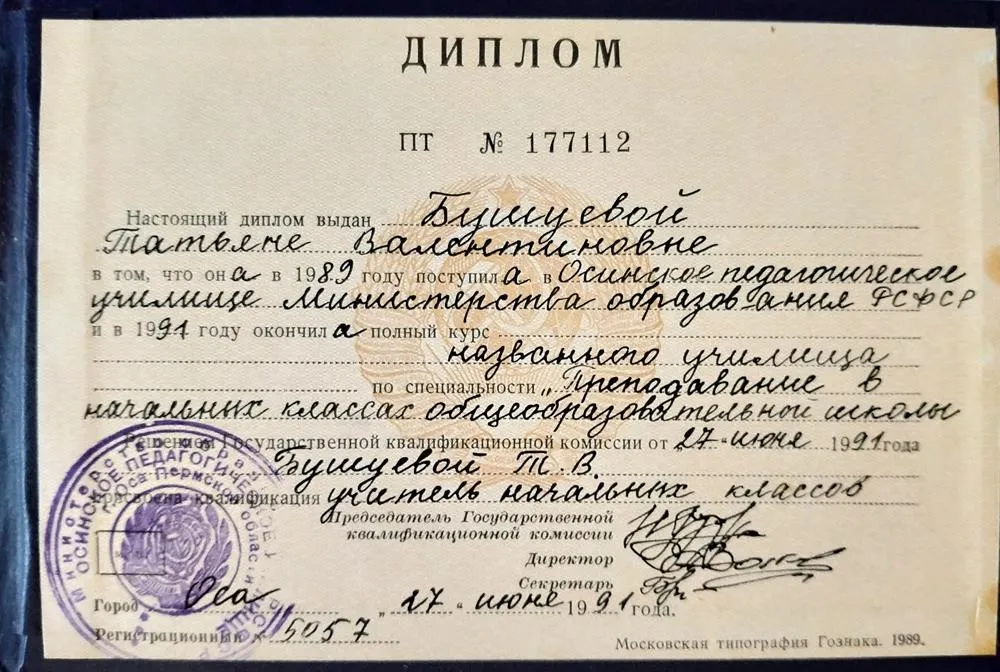 ДИПЛОМ
ПТ № 177112
Настоящий диплом выдан Бушуевой
Татьяне Валентиновне
в том, что она в 1989 году поступила в Осинское педагогическое
училище Министерства образования РСФСР
и в 1991 году окончила полный курс
названного училища
по специальности „Преподавание в
начальных классах общеобразовательной школы
Решением Государственной квалификационной комиссии от 27 июня 1991 года
Бушуевой Т. В.
присвоена квалификация учитель начальных классов
Председатель Государственной
квалификационной комиссии
Директор
Секретарь
Город Оса „27" июня 1991 года.
Регистрационный № 5057
Московская типография Гознака. 1989.